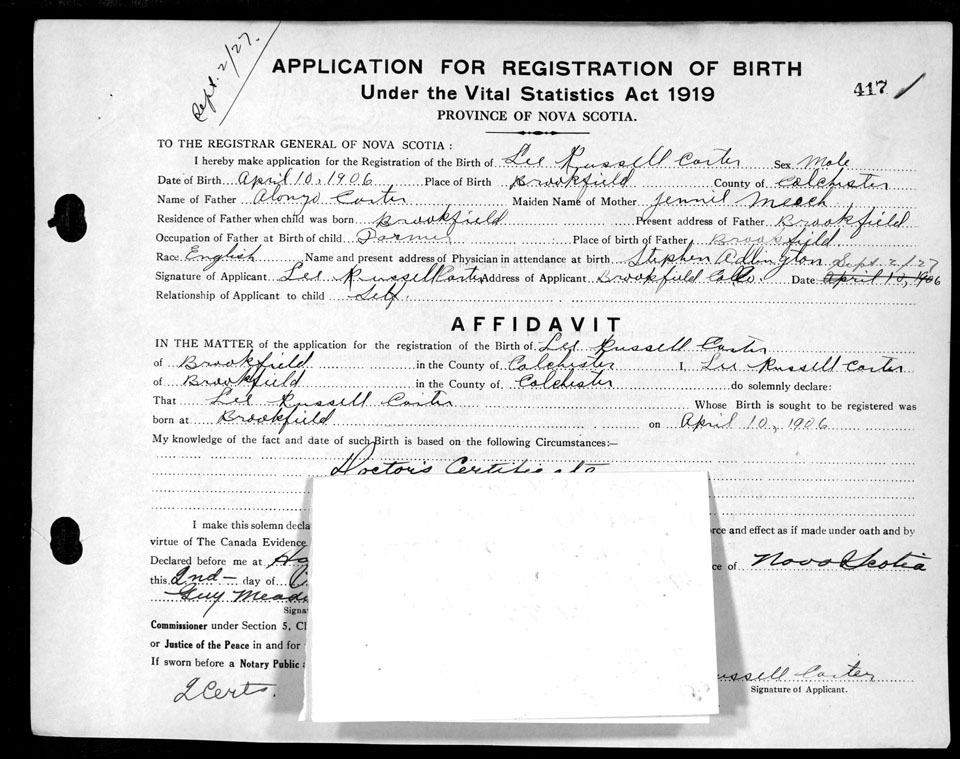 Sept. 2/27.
APPLICATION FOR REGISTRATION OF BIRTH
Under the Vital Statistics Act 1919
417
PROVINCE OF NOVA SCOTIA.
TO THE REGISTRAR GENERAL OF NOVA SCOTIA :
I hereby make application for the Registration of the Birth of Lee Russell Carter Sex Male
Date of Birth April 10, 1906 Place of Birth Brookfield County of Colchester
Name of Father Alonzo Carter Maiden Name of Mother Jennie Meech
Residence of Father when child was born Brookfield Present address of Father Brookfield
Occupation of Father at Birth of child Farmer Place of birth of Father Brookfield
Race English Name and present address of Physician in attendance at birth Stephen Adlington Sept. 2/27
Signature of Applicant Lee Russell Carter Address of Applicant Brookfield Col Co. Date April 10, 1906
Relationship of Applicant to child Self.
AFFIDAVIT
IN THE MATTER of the application for the registration of the Birth of Lee Russell Carter
of Brookfield in the County of Colchester I, Lee Russell Carter
of Brookfield in the County of Colchester do solemnly declare:
That Lee Russell Carter Whose Birth is sought to be registered was
born at Brookfield on April 10, 1906
My knowledge of the fact and date of such Birth is based on the following Circumstances:—
Doctor's Certificate
I make this solemn decla rce and effect as if made under oath and by
virtue of The Canada Evidence
Declared before me at ce of Nova Scotia
this 2nd — day of
Guy Meade
Signa
Commissioner under Section 5, Cl
or Justice of the Peace in and for
If sworn before a Notary Public a
ussell Carter
2 Certs.
Signature of Applicant.